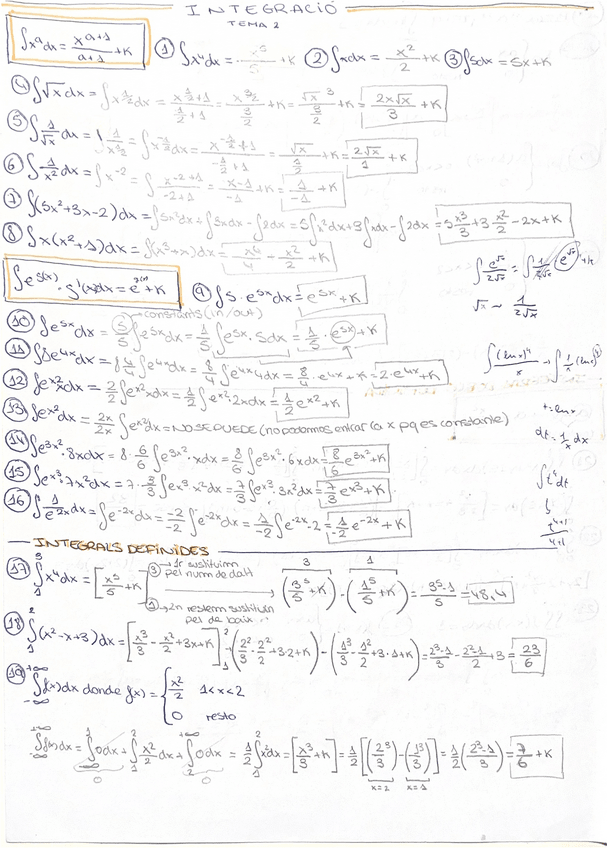 INTEGRACIÓ
TEMA 2
∫xᵃdx = x^(a+1)/(a+1) + K
① ∫x⁴dx = x⁵/5 + K ② ∫xdx = x²/2 + K ③ ∫5dx = 5x + K
④ ∫√x dx = ∫x^(1/2)dx = x^(1/2+1)/(1/2+1) = x^(3/2)/(3/2) + K = √x³/(3/2) + K = 2x√x/3 + K
⑤ ∫1/√x dx = ∫1/x^(3/2) = ∫x^(-1/2)dx = x^(-1/2+1)/(-1/2+1) = √x/(1/2) + K = 2√x/1 + K
⑥ ∫1/x² dx = ∫x⁻² = ∫x^(-2+1)/(-2+1) = x⁻¹/-1 + K = 1/-1 + K
⑦ ∫(5x²+3x-2)dx = ∫5x²dx + ∫3xdx - ∫2dx = 5∫x²dx + 3∫xdx - ∫2dx = 5 x³/3 + 3 x²/2 - 2x + K
⑧ ∫x(x²+1)dx = ∫(x³+x)dx = x⁴/4 - x²/2 + K
∫e^√x/2√x = ∫1/2√x (e^√x) + K
√x ~ 1/2√x
∫e^(f(x)) · f'(x)dx = e^(f(x)) + K
⑨ ∫5·e^(5x)dx = e^(5x) + K
constants (in/out)
⑩ ∫e^(5x)dx = 5/5 ∫e^(5x)dx = 1/5 ∫e^(5x)·5dx = 1/5 · e^(5x) + K
⑪ ∫8e^(4x)dx = 8 4/4 ∫e^(4x)dx = 8/4 ∫e^(4x)4dx = 8/4 · e^(4x) + K = 2·e^(4x) + K
∫(ln x)⁴/x → ∫1/x (ln x)⁴
⑫ ∫e^(x²)xdx = 2/2 ∫e^(x²)xdx = 1/2 ∫e^(x²)2xdx = 1/2 e^(x²) + K
⑬ ∫e^(x²)dx = 2x/2x ∫e^(x²)dx = NO SE PUEDE (no podemos entrar la x pq es constante)
t = ln x
dt = 1/x dx
⑭ ∫e^(3x²)·8xdx = 8·6/6 ∫e^(3x²)·xdx = 8/6 ∫e^(3x²)·6xdx = 8/6 e^(3x²) + K
⑮ ∫e^(x³)·7x²dx = 7·3/3 ∫e^(x³)·x²dx = 7/3 ∫e^(x³)·3x²dx = 7/3 e^(x³) + K
∫t⁴dt
⑯ ∫1/e^(2x) dx = ∫e^(-2x)dx = -2/-2 ∫e^(-2x)dx = 1/-2 ∫e^(-2x)·-2 = 1/-2 e^(-2x) + K
t^(4+1)/(4+1)
INTEGRALS DEFINIDES
⑰ ∫₁³ x⁴dx = [x⁵/5 + K] ③ → 1r sustituim pel num de dalt
① → 2n restem sustituin pel de baix
(3⁵/5 + K) - (1⁵/5 + K) = 3⁵-1/5 = 48,4
⑱ ∫₁² (x²-x+3)dx = [x³/3 - x²/2 + 3x + K]₁² (2³/3 - 2²/2 + 3·2 + K) - (1³/3 - 1²/2 + 3·1 + K) = 2³-1/3 - 2²-1/2 + 3 = 23/6
⑲ ∫₋∞⁺∞ f(x)dx donde f(x) = { x²/2 1<x<2
0 resto
∫₋∞⁺∞ f(x)dx = ∫₋∞¹ 0dx + ∫₁² x²/2 dx + ∫₂⁺∞ 0dx = 1/2 ∫₁² x²dx = [x³/3 + K] = 1/2 [(2³/3) - (1³/3)] = 1/2 (2³-1/3) = 7/6 + K
0 0 x=2 x=1